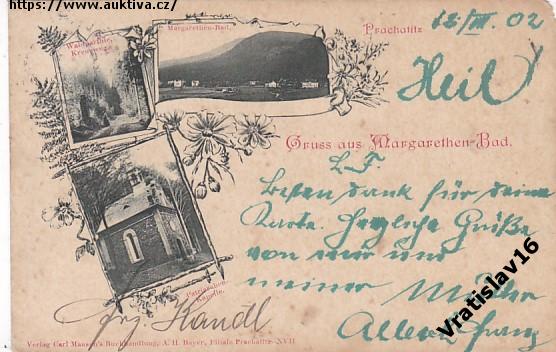 https://www.auktiva.cz/
Margarethen-Bad.
Prachatitz
12/III. 02
Waldpartie,
Kreuzweg.
Heil
Gruss aus Margarethen-Bad.
L. F.
Besten dank für deine
Karte. Herzliche Grüße
von mir und
meiner Mutter
Patriarchen-
Kapelle.
Kandl
Franz
Vratislav16
Verlag Carl Mansch's Buchhandlung, A. H. Bayer, Filiale Prachatitz.-XVII